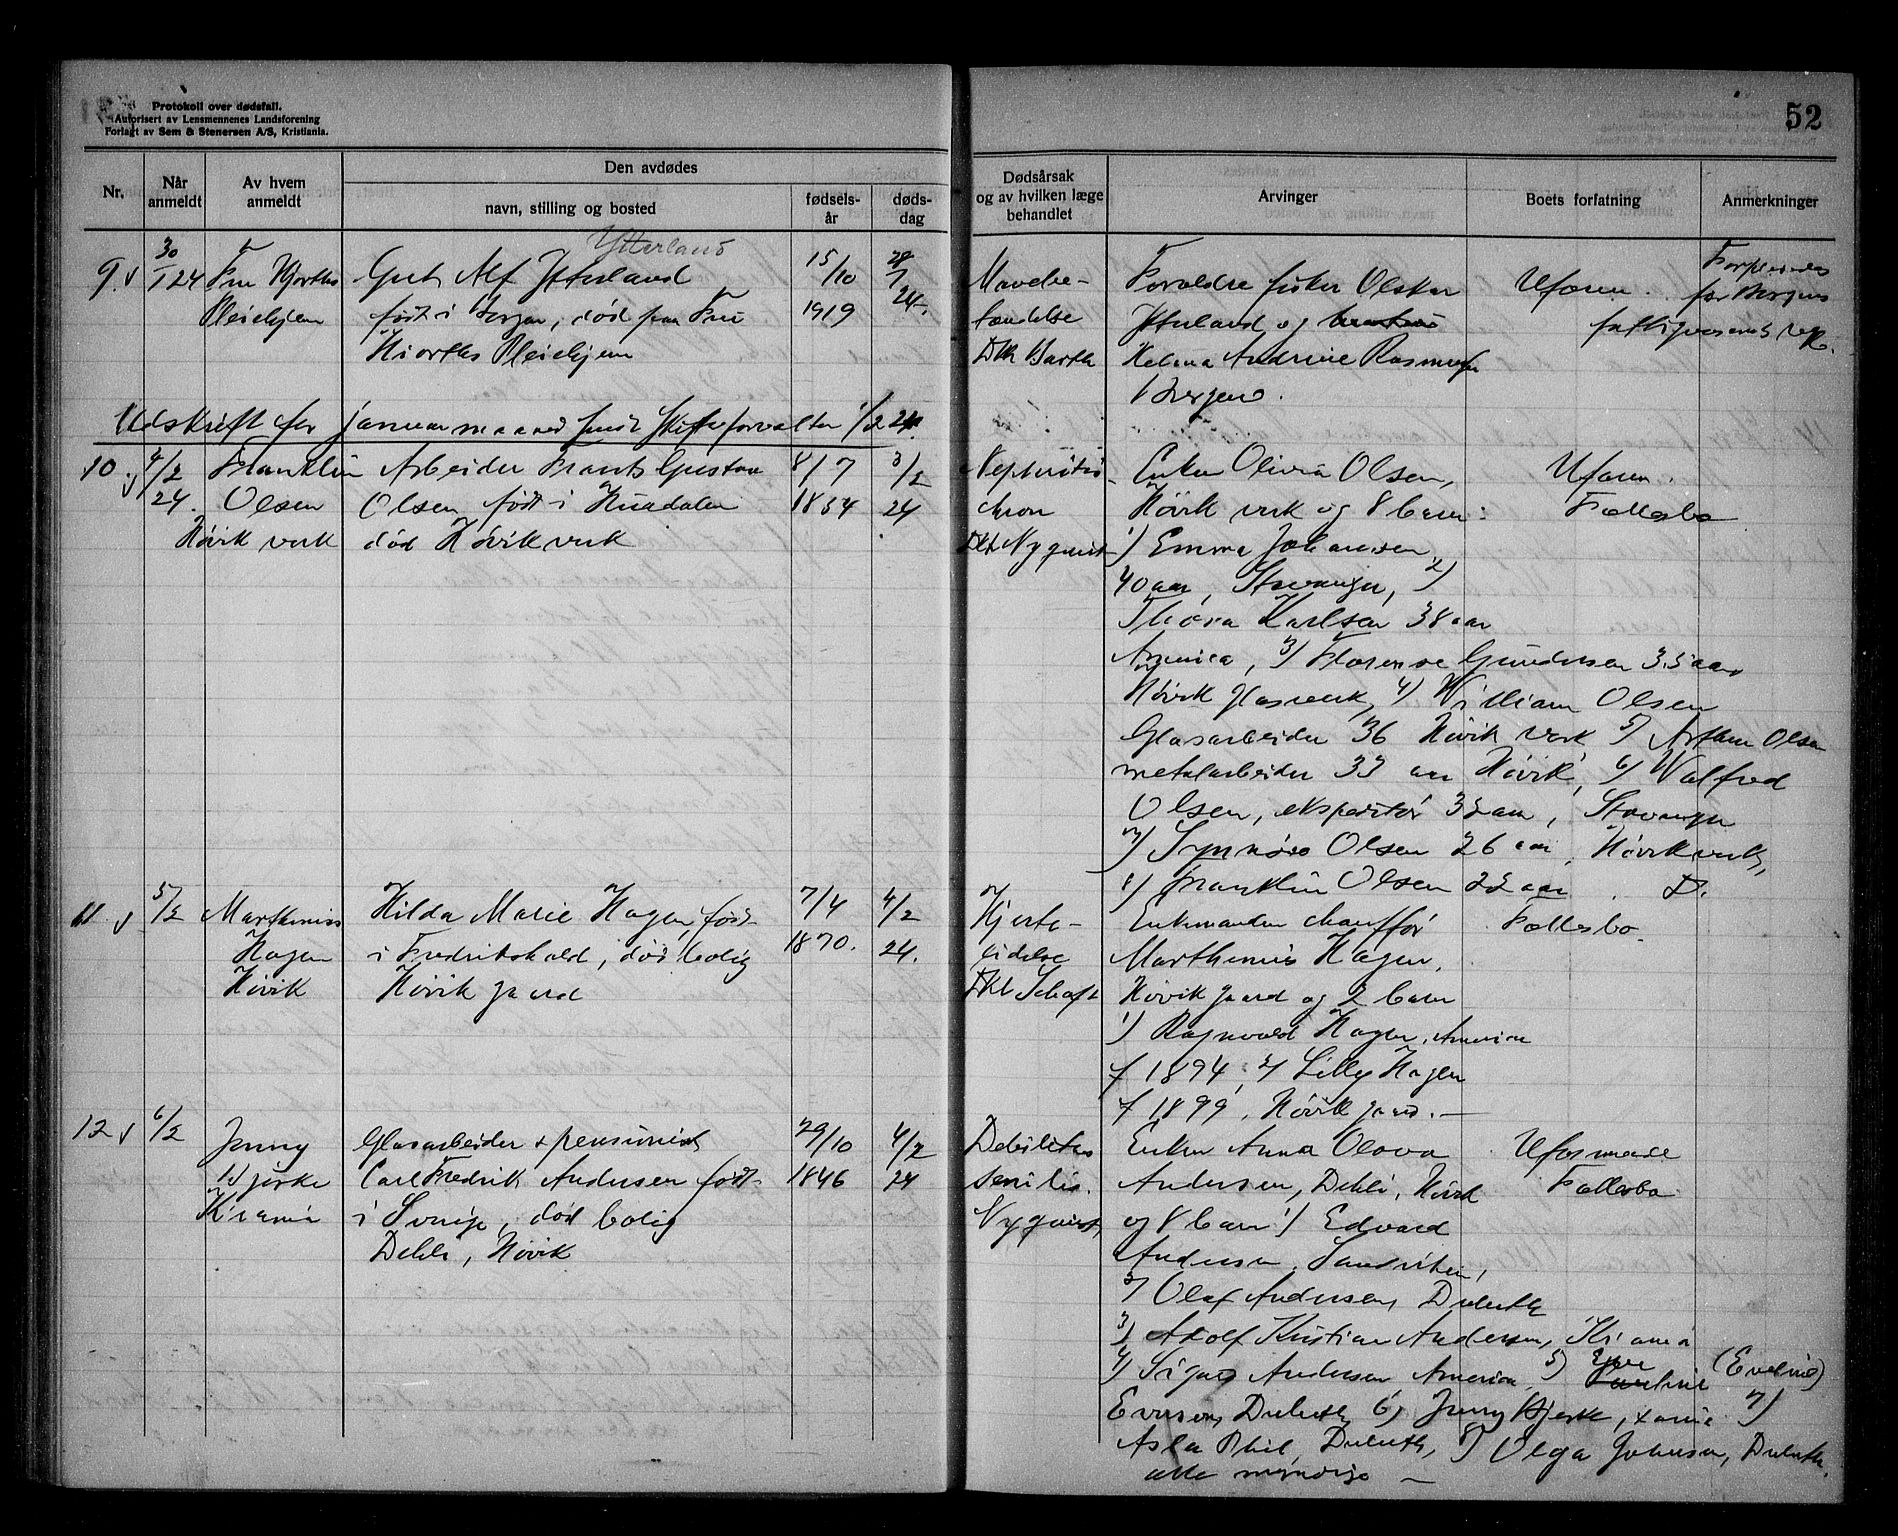 Protokoll over dødsfall.
Autorisert av Lensmennenes Landsforening
Forlagt av Sem & Stenersen A/S, Kristiania.
52
Nr.
Når anmeldt
Av hvem anmeldt
Den avdødes
navn, stilling og bosted
fødsels-år
døds-dag
Dødsårsak og av hvilken læge behandlet
Arvinger
Boets forfatning
Anmerkninger
Ytterland
9.
30/1 24
Fru Hjorths
Pleiehjem
Gert Alf Ytterland
født i Bergen, død paa Fru
Hiorths Pleiehjem
15/10
1919
24.
Dr Barth
Forældre fisker Olskar
Ytterland og
Helena Andrine Rasmussen
i Bergen.
Uformu.
for Bergens
fattigvæsens
Udskrift for januar maaned sendt Skifteforvalter 1/2 24.
10.
4/2
24.
Franklin
Olsen
Høvik verk
Arbeider Frants Gustav
Olsen, født i Hurdalen
død Høvik verk
8/7
1854
3/2
24
Nephritis
chron
Dr Nyquist
Enken Olivia Olsen,
Høvik verk og 8 barn:
1) Emma Johansen,
40 aar, Stavanger, 2)
Thora Karlsen 38 aar
America, 3) Florence Gundersen 35 aar
Høvik Glasverk, 4) William Olsen
Glasarbeider 36 Høvik verk 5) Arthur Olsen
metalarbeider 33 aar Høvik, 6) Walfred
Olsen, ekspeditør 32 aar, Stavanger
7) Synnøve Olsen 26 aar, Høvik verk,
8) Franklin Olsen 22 aar. D.
Uformu.
Fællesbo
11
5/2
Marthinius
Hagen
Høvik
Hilda Marie Hagen, født
i Fredrikshald, død bolig
Høvik gaard
7/4
1870.
4/2
24.
Hjerte-
lidelse
Enkemanden chauffør
Marthinius Hagen,
Høvik gaard og 2 barn
1) Ragnvald Hagen, America
f 1894, 2) Lilly Hagen
f 1899, Høvik gaard. —
Fællesbo.
12
6/2
Jenny
Bjerke
Kr.ania
Glasarbeider & pensionist
Carl Fredrik Andersen født
i Sverige, død bolig
Dehli, Høvik
29/10
1846
4/2
24
Debilitas
senilis.
Nyquist,
Enken Anna Olava
Andersen, Dehli, Høvik
og 8 barn 1) Edvard
Andersen, Sandviken,
2) Olaf Andersen, Duluth
3) Adolf Kristian Andersen, Kr.ania
4) Sigurd Andersen America 5) (Eveline)
Everson, Duluth, 6) Jenny Bjerke, Xania 7)
Asla Phil, Duluth, 8) Olga Johnson, Duluth.
alle myndige —
Uformuende
Fællesbo